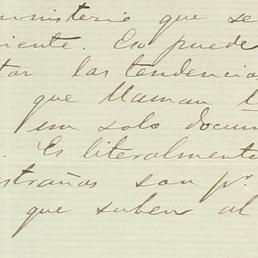 ministerio que se
iente. Eso puede
tar las tendencia
que llaman l
un solo docum
. Es literalmente
straños son pr.
que suben al